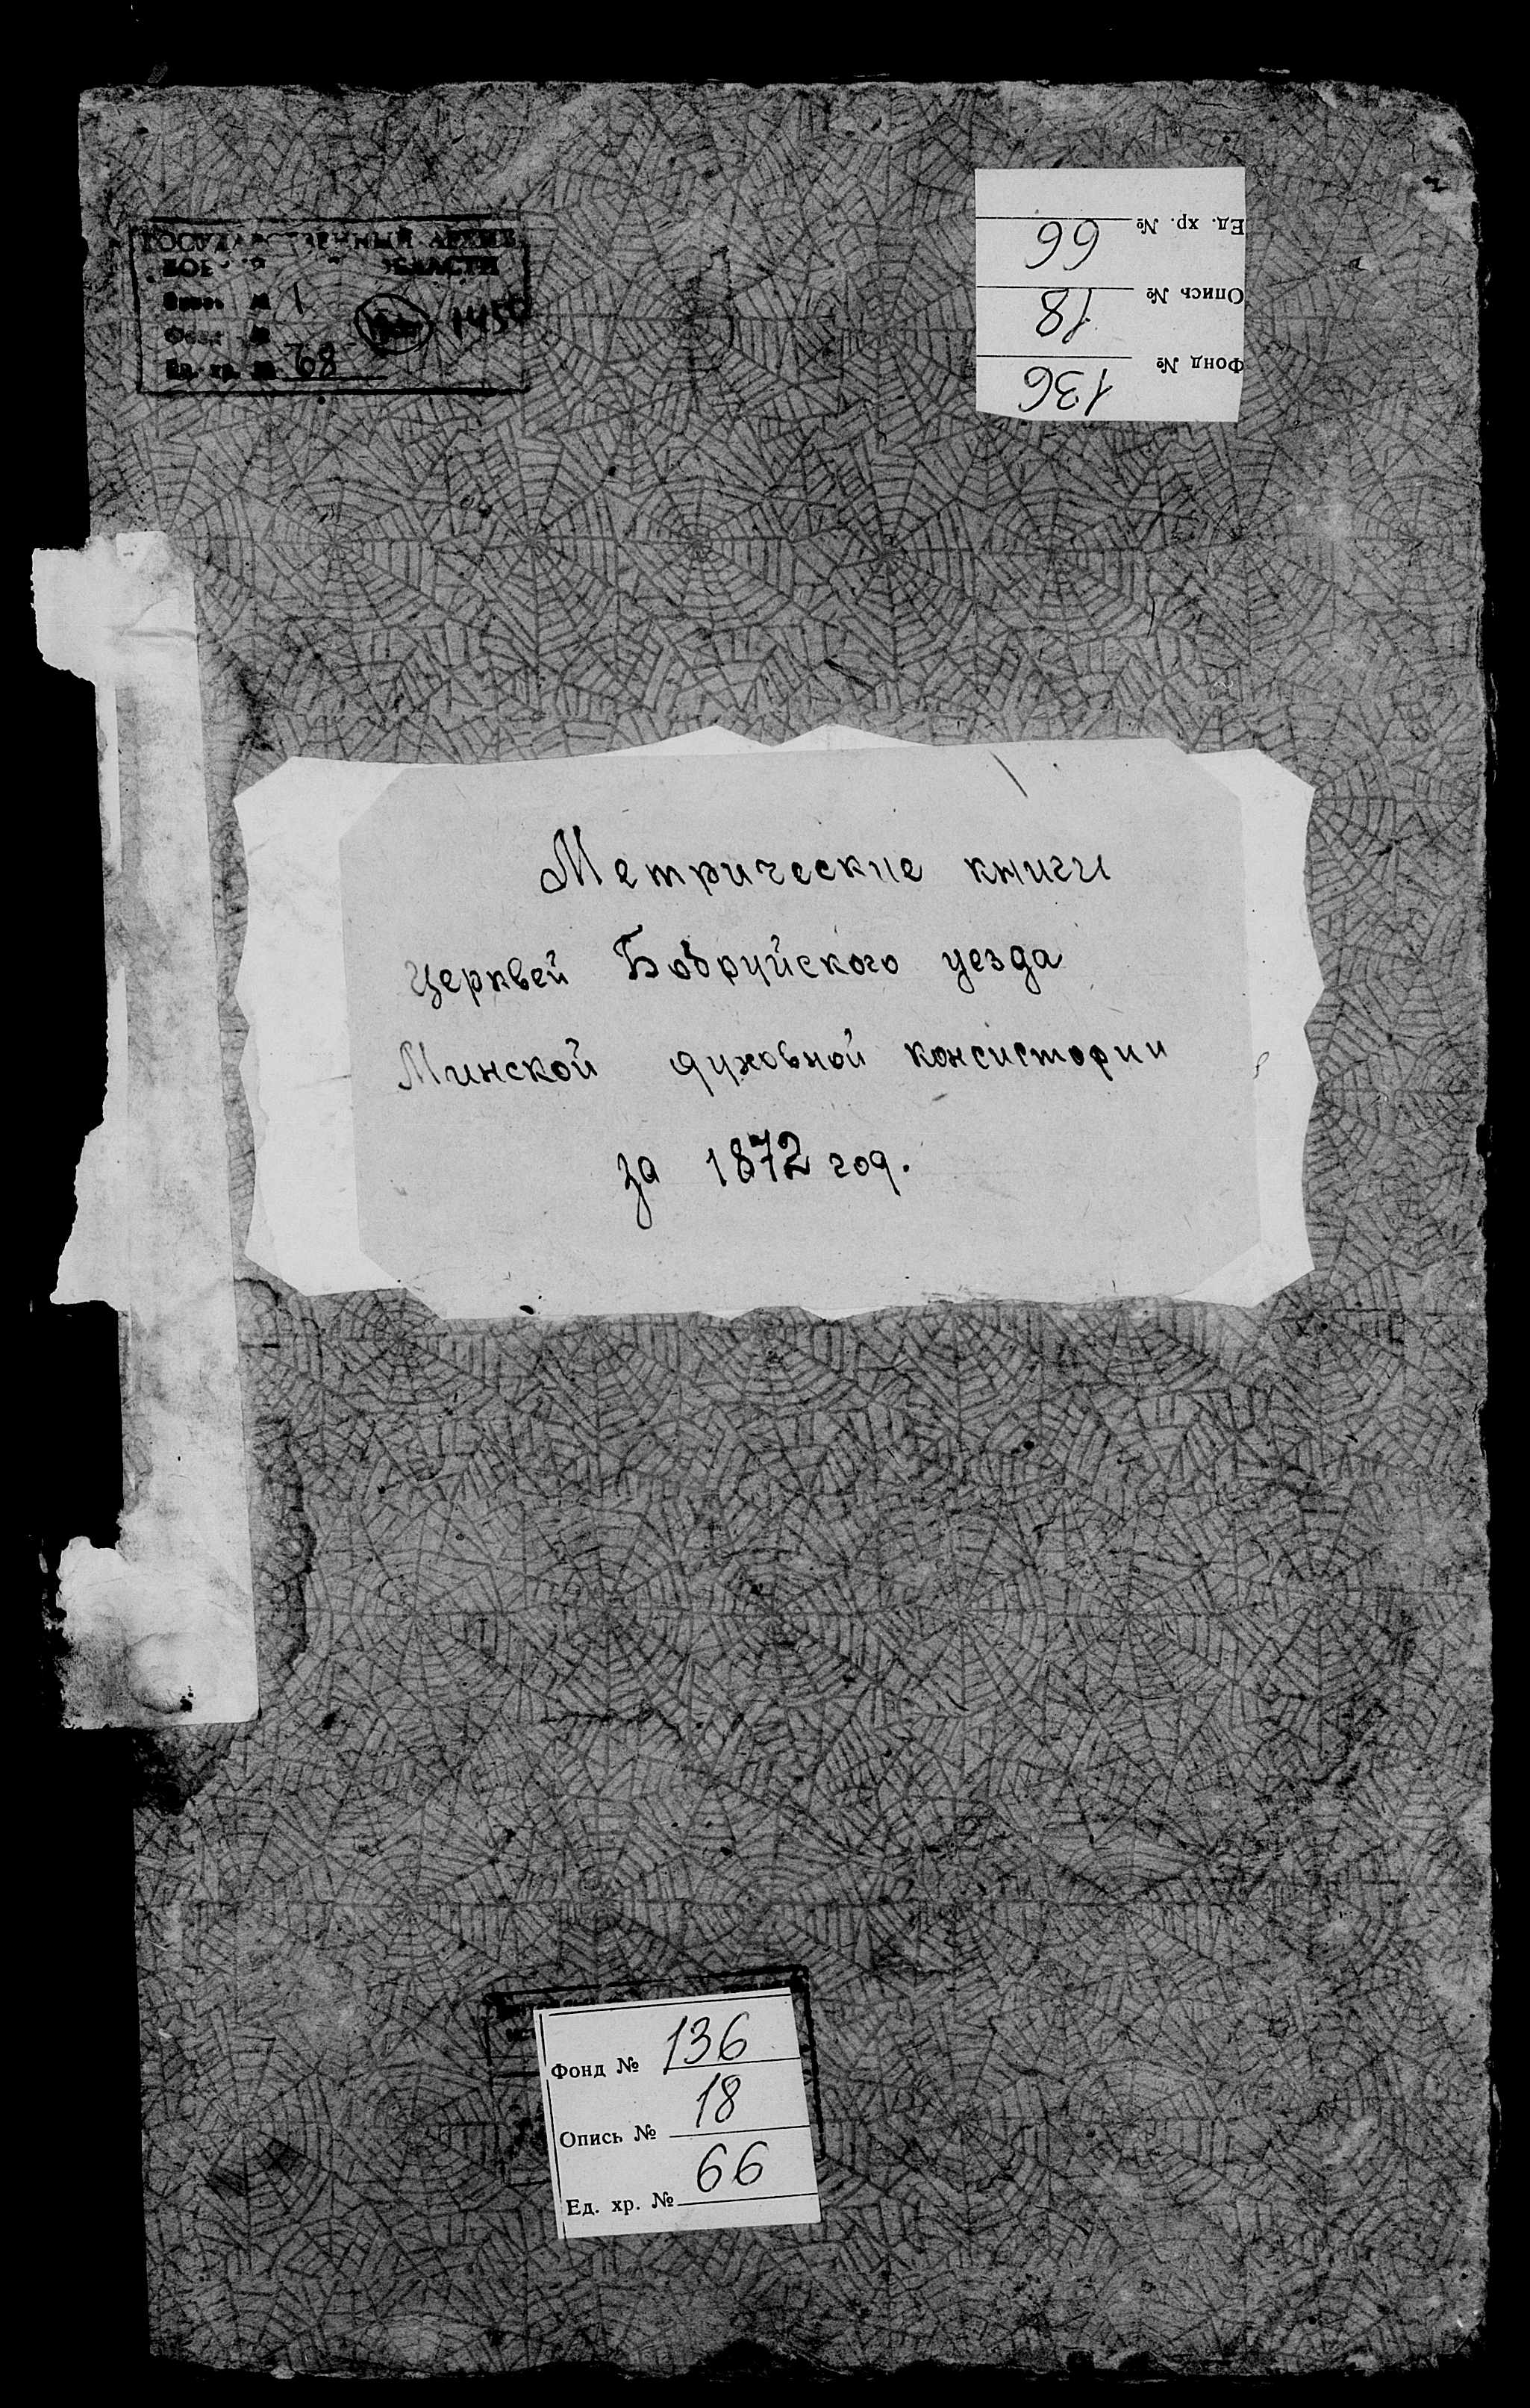 ГОСУДАРСТВЕННЫЙ АРХИВ
ОБЛАСТИ
Ед. хр. № 68
Ед. хр. № 66
Опись № 18
Фонд № 136
Метрические книги
церквей Бобруйского уезда
Минской духовной консистории
за 1872 год.
Фонд № 136
Опись № 18
Ед. хр. № 66